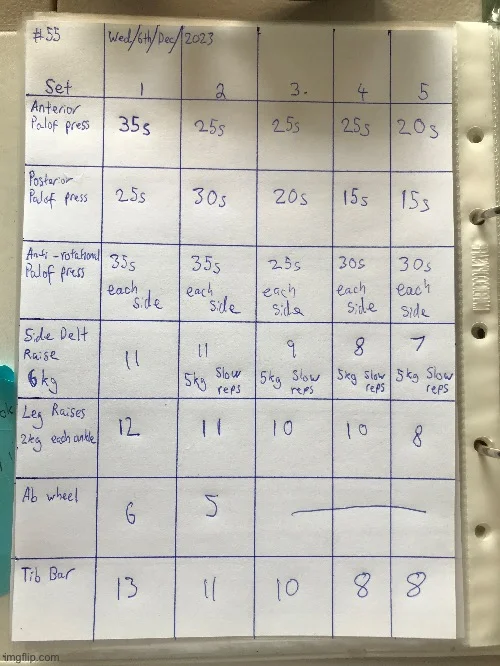 #55 Wed/6th/Dec/2023
Set 1 2 3. 4 5
Anterior
Palof press 35s 25s 25s 25s 20s
Posterior
Palof press 25s 30s 20s 15s 15s
Anti-rotational 35s 35s 25s 30s 30s
Palof press each each each each each
side side side side side
Side Delt
Raise 11 11 9 8 7
6kg 5kg Slow 5kg Slow 5kg Slow 5kg Slow
reps reps reps reps
Leg Raises
2kg each ankle 12 11 10 10 8
Ab wheel 6 5
Tib Bar 13 11 10 8 8
imgflip.com